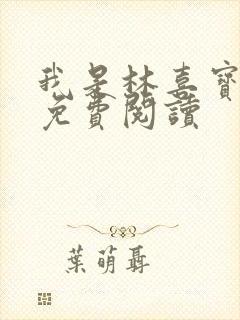 我是林喜寶
免費閱讀
葉萌聶